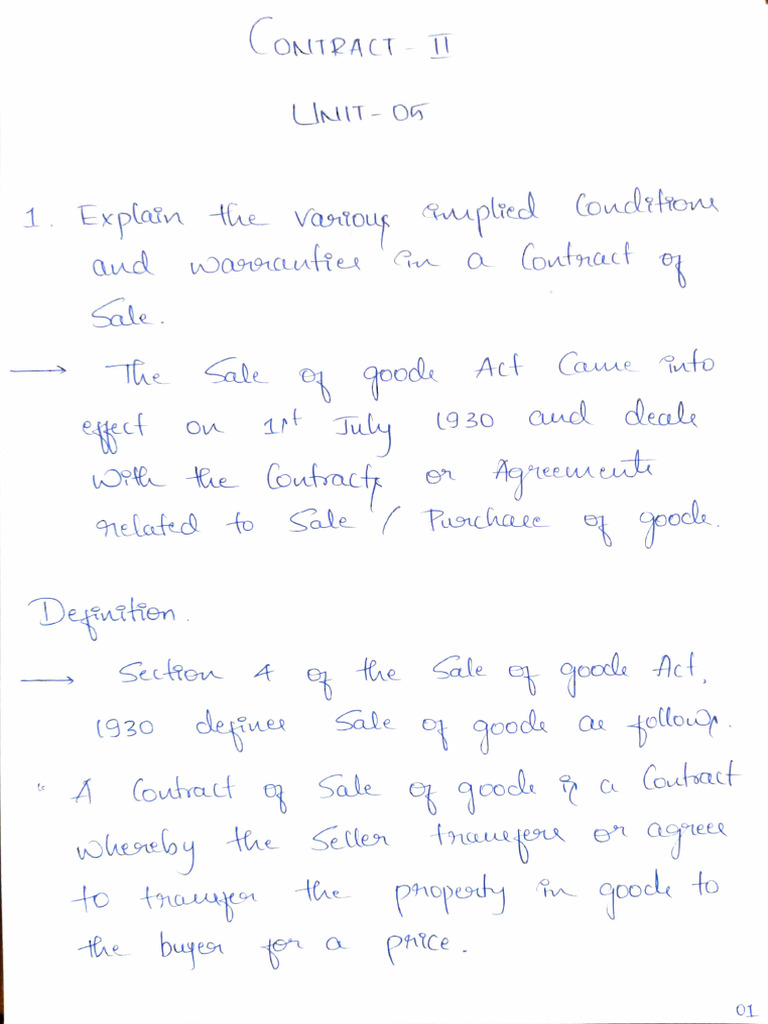 CONTRACT - II
UNIT - 05
1. Explain the various implied conditions
and warranties in a Contract of
Sale.
→ The Sale of goods Act Came into
effect on 1st July 1930 and deals
with the Contracts or Agreements
related to Sale / Purchase of goods.
Definition.
→ Section 4 of the Sale of goods Act,
1930 defines Sale of goods as follows.
" A Contract of Sale of goods is a Contract
whereby the Seller transfers or agrees
to transfer the property in goods to
the buyer for a price.
01